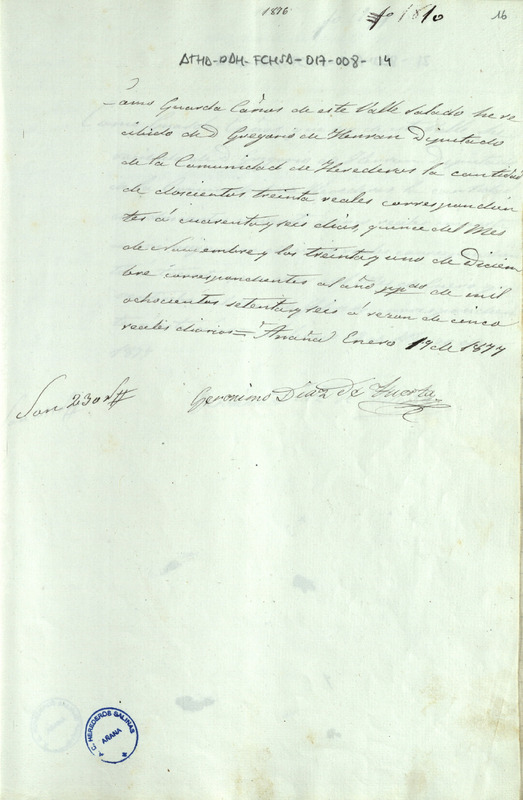 1876
1810
16
ATHA-DAH-FCHSA-017-008-14
Guarda Cañas de este Valle Salado he re
cibido de D Gregorio de Diputado
de la Comunidad de Herederos la cantidad
de doscientos treinta reales correspondien
tes á cuarenta y seis dias, quince del Mes
de Noviembre y los treinta y uno de Diciem
bre correspondientes al año de mil
ochocientos setenta y seis á razon de cinco
reales diarios = Añaña Enero 1º de 1877
Son 230 rs
Geronimo Diaz de Huerta
C. HEREDEROS SALINAS
AÑANA